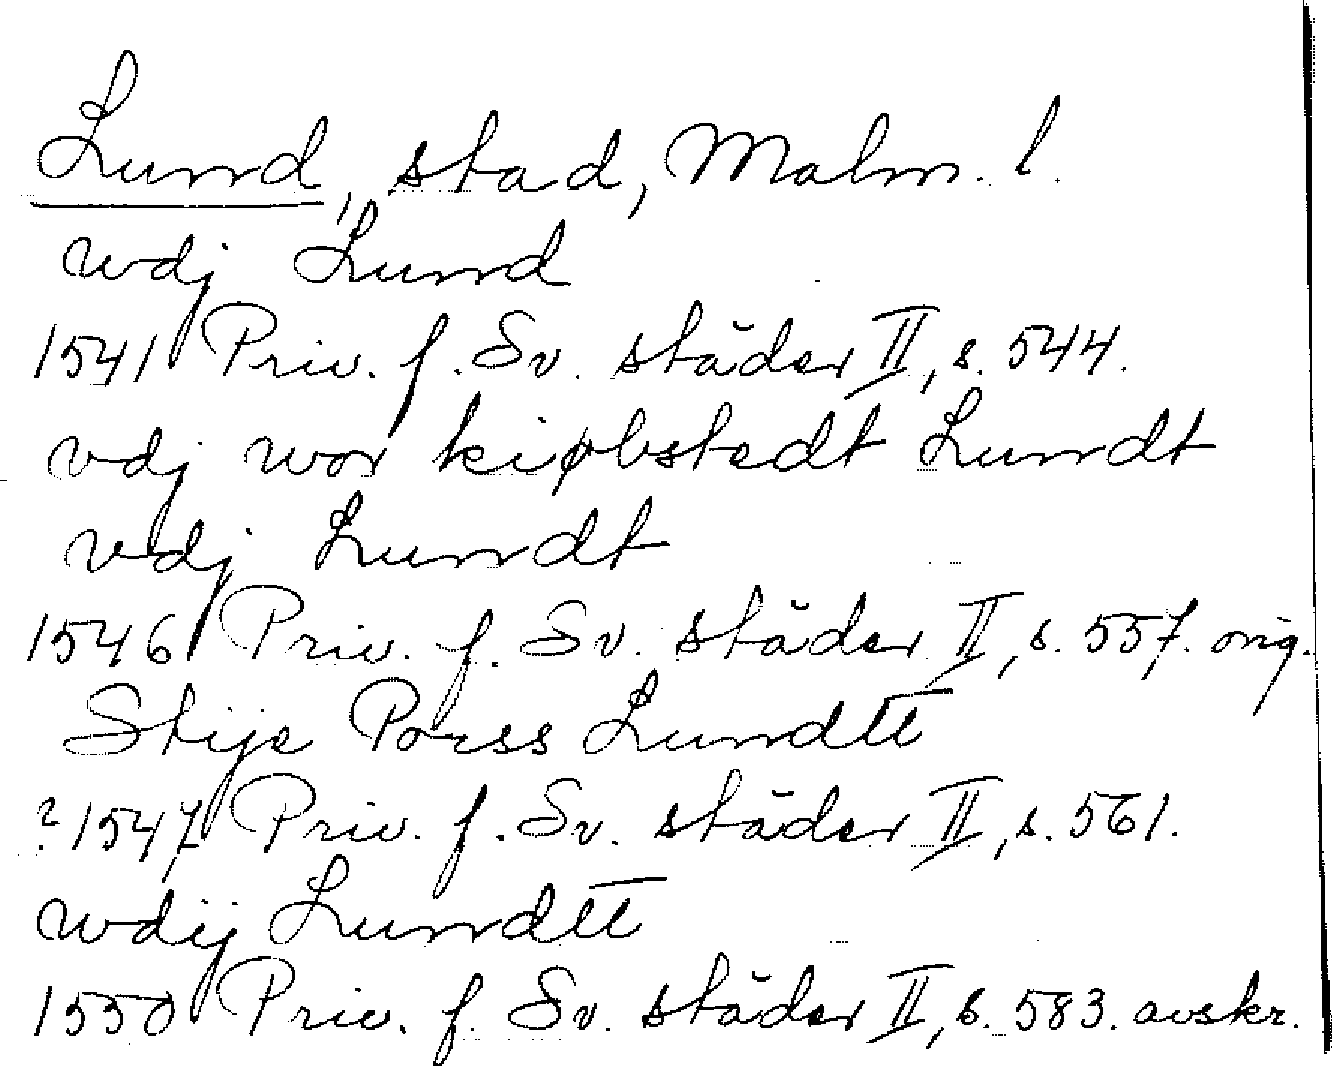 Lund, stad, Malm. l.
wdj Lund
1541 Priv. f. Sv. städer II, s. 544.
vdj wor kiøbstedt Lundt
vdj Lundt
1546 Priv. f. Sv. städer II, s. 557. orig.
Stije Porss Lundtt
? 1547 Priv. f. Sv. städer II, s. 561.
wdij Lundtt
1550 Priv. f. Sv. städer II, s. 583. avskr.